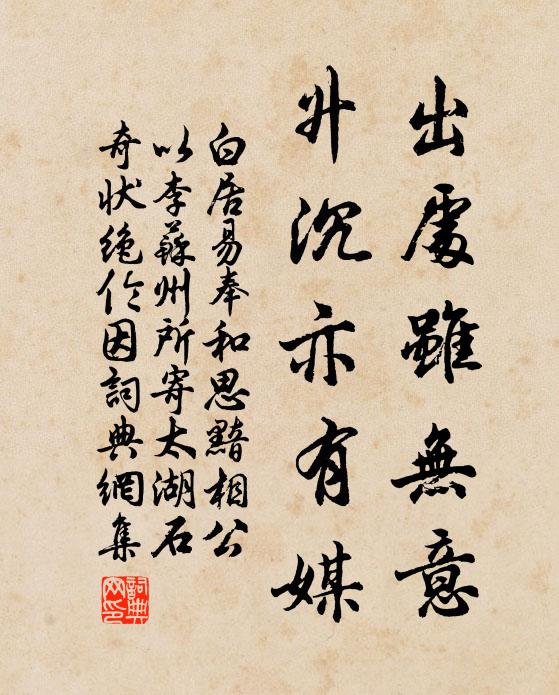 出處雖無意
升沉亦有媒
白居易奉和思黯相公
以李蘇州所寄太湖石
奇狀絶伦因詞典網集
詞典
网印